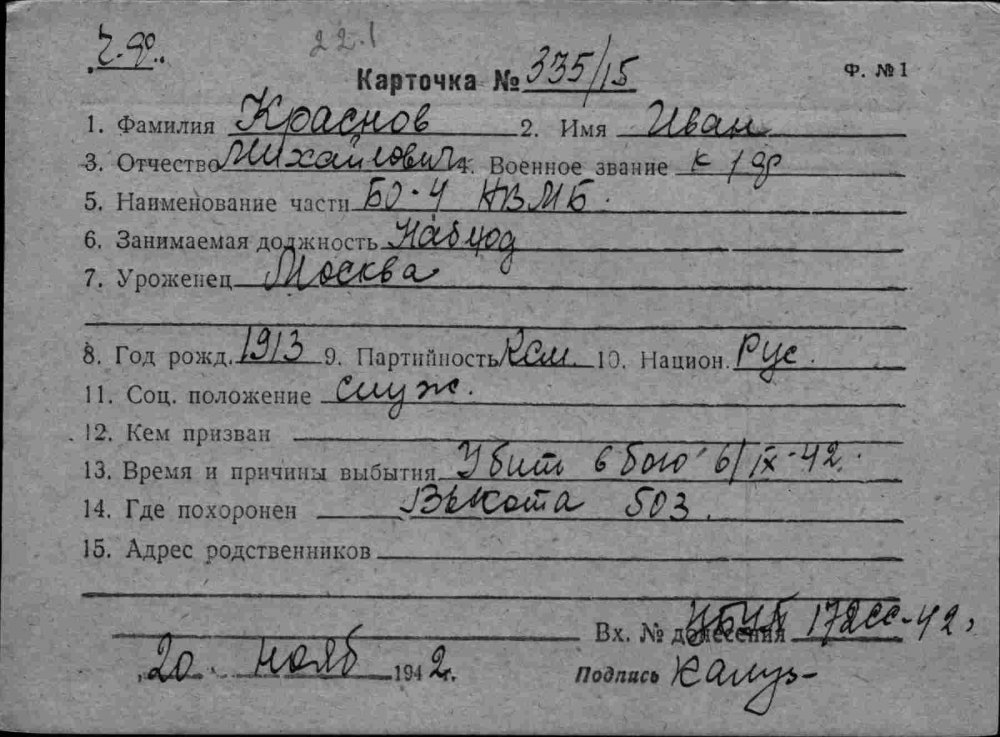 22.1
Карточка № 335/15 Ф. № 1
1. Фамилия Краснов 2. Имя Иван
3. Отчество Михайлович 4. Военное звание к 1 др
5. Наименование части БО-4 НВМБ.
6. Занимаемая должность
7. Уроженец Москва
8. Год рожд. 1913 9. Партийность Ксм. 10. Национ. Рус.
11. Соц. положение служ.
12. Кем призван
13. Время и причины выбытия Убит в бою 6/IX-42.
14. Где похоронен Высота 503.
15. Адрес родственников
Вх. № донесения 172сс-42,
20. нояб 1942 г. Подпись